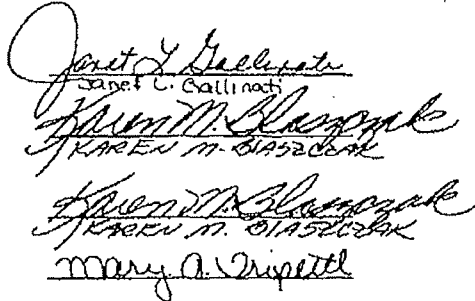 Janet L Gallinati
Janet L. Gallinati
Karen M. Blaszczak
KAREN M. BLASZCZAK
Karen M. Blaszczak
KAREN M. BLASZCZAK
Mary A.